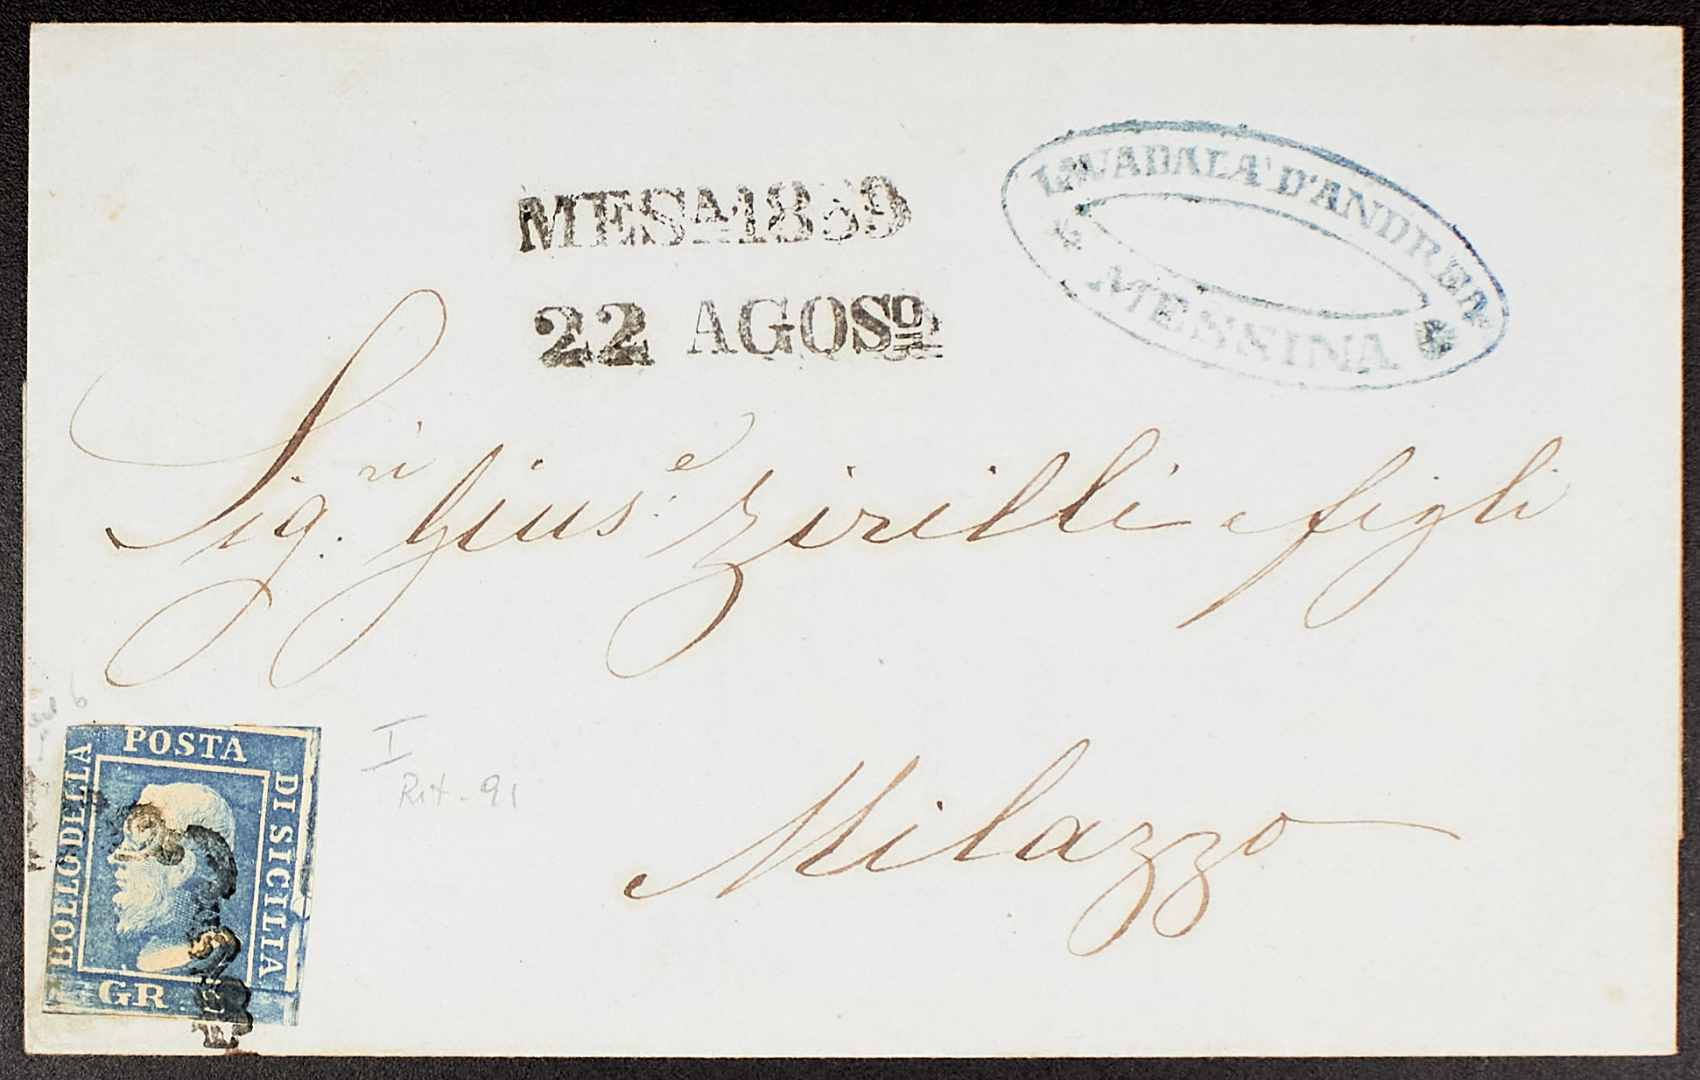 MESA 1859
22 AGOSO
LA VADALA' D'ANDREA
MESSINA
Sig.ri Gius.e Zirilli e figli
Milazzo
BOLLO DELLA
POSTA
DI SICILIA
GR
I
Rit - 91